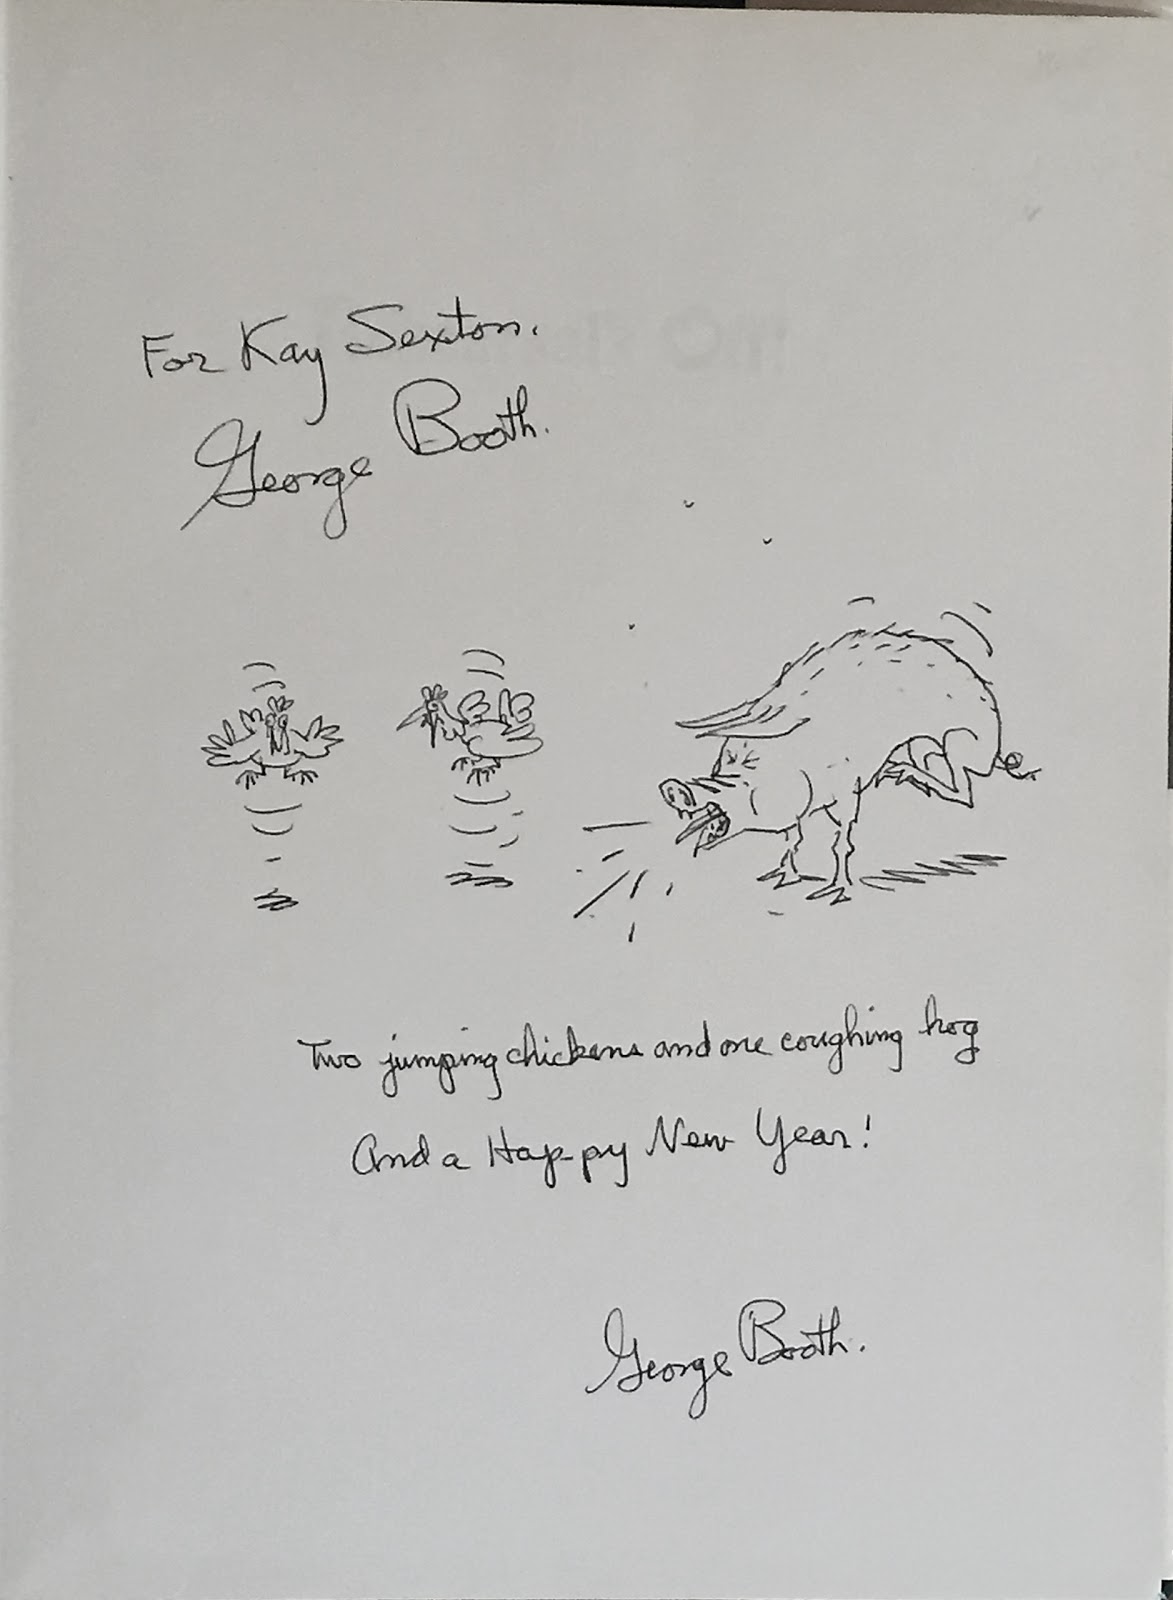 For Kay Sexton.
George Booth.
Two jumping chickens and one coughing hog
and a Happy New Year!
George Booth.